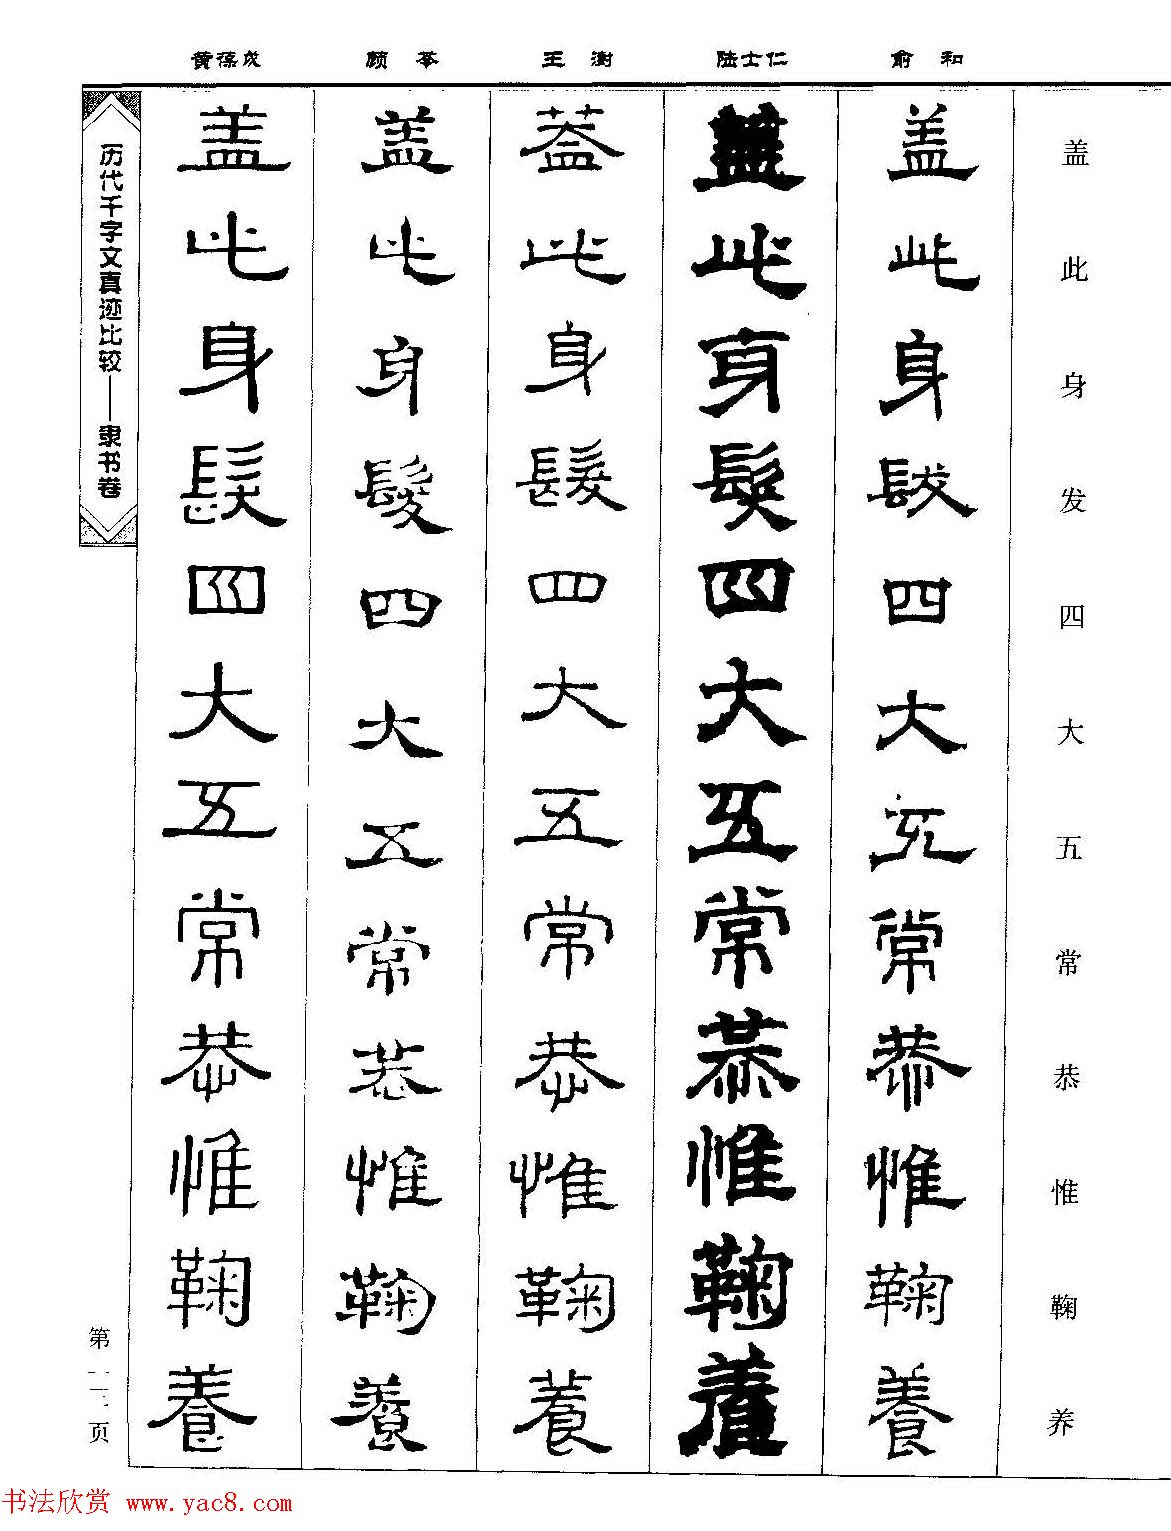 黄葆戉 顾苓 王澍 陆士仁 俞和
历代千字文真迹比较——隶书卷
盖此身发四大五常恭惟鞠养
盖此身髮四大五常恭惟鞠養
盖此身髮四大五常恭惟鞠養
蓋此身髮四大五常恭惟鞠養
盖此身髮四大五常恭惟鞠養
盖此身髮四大五常恭惟鞠養
第 页
书法欣赏 www.yac8.com